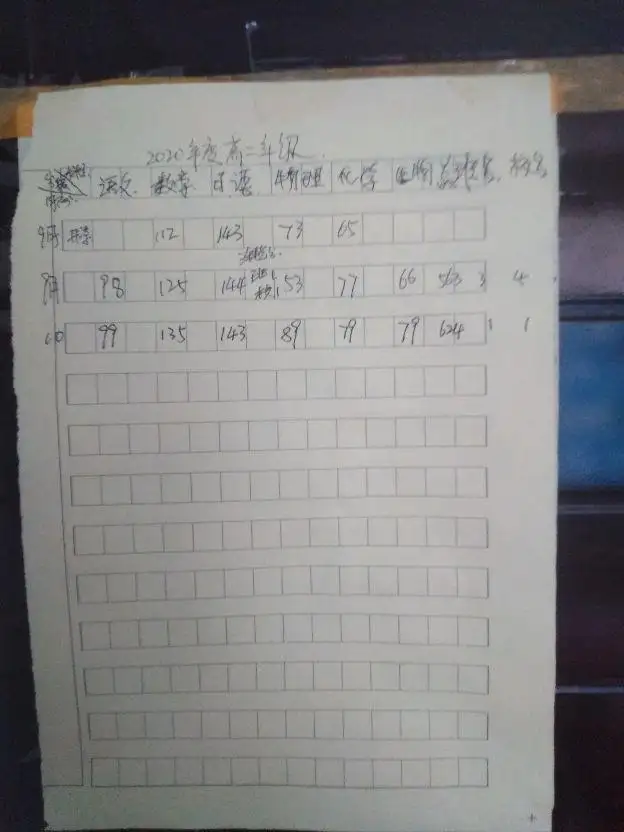 2020年度高二年级
语文 数学 日语 物理 化学 生物 总 校名
9月 开学 112 143 73 65
9月 98 125 144 53 77 66 563 3 4
10 99 135 143 89 79 79 624 1 1